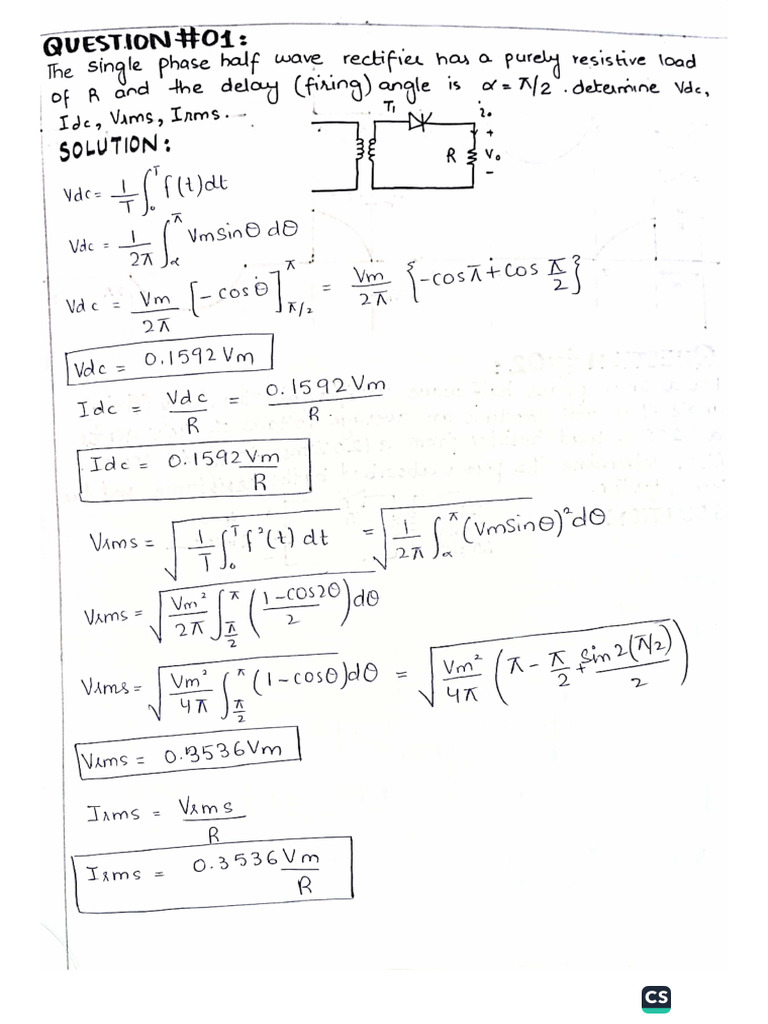 QUESTION#01:
The single phase half wave rectifier has a purely resistive load
of R and the delay (firing) angle is α = π/2. determine Vdc,
Idc, Vrms, Irms.
T1 io
SOLUTION:
R + Vo -
Vdc = 1/T ∫₀ᵀ f(t)dt
Vdc = 1/2π ∫_α^π Vm sinθ dθ
Vdc = Vm/2π [-cosθ]_π/2^π = Vm/2π {-cosπ + cos π/2}
Vdc = 0.1592 Vm
Idc = Vdc/R = 0.1592 Vm/R.
Idc = 0.1592 Vm/R
Vrms = √(1/T ∫₀ᵀ f²(t) dt) = √(1/2π ∫_α^π (Vm sinθ)² dθ)
Vrms = √(Vm²/2π ∫_π/2^π ((1-cos2θ)/2) dθ)
Vrms = √(Vm²/4π ∫_π/2^π (1-cosθ)dθ) = √(Vm²/4π (π - π/2 + sin2(π/2)/2))
Vrms = 0.3536 Vm
Irms = Vrms/R
Irms = 0.3536 Vm/R
CS